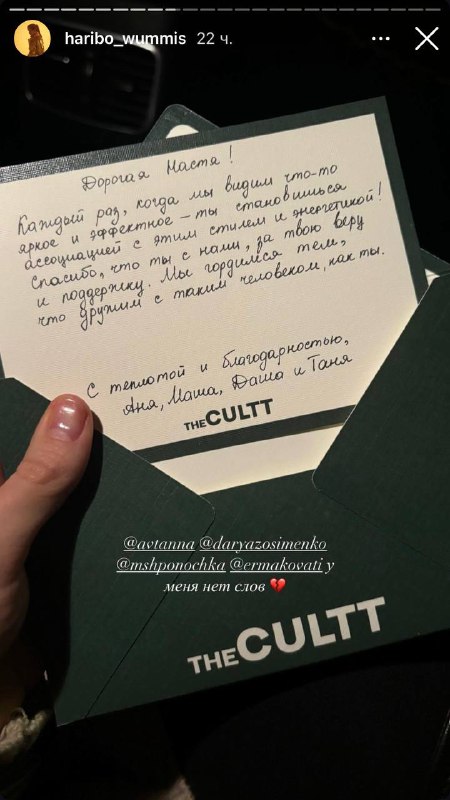 haribo_wummis 22 ч.
Дорогая Настя!
Каждый раз, когда мы видим что-то
яркое и эффектное – ты становишься
ассоциацией с этим стилем и энергетикой!
Спасибо, что ты с нами, за твою веру
и поддержку. Мы гордимся тем,
что дружим с таким человеком, как ты.
С теплотой и благодарностью,
Аня, Маша, Даша и Таня
THE CULTT
@avtanna @daryazosimenko
@mshponochka @ermakovati у
меня нет слов 💔
THE CULTT